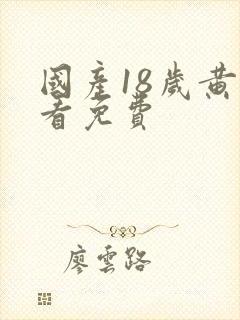 國產18歲黄
看免費
廖雲路